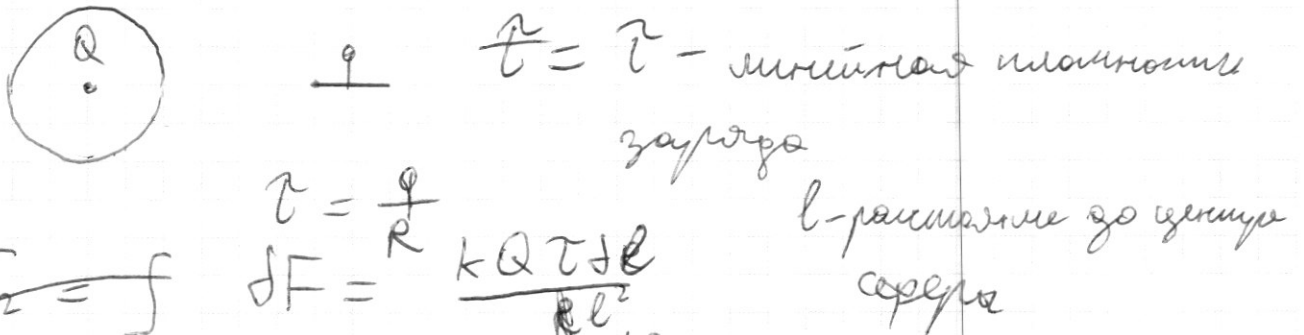 Q q τ = τ - линейная плотность
заряда
τ = q/R
l - расстояние до центра
сферы
dF = kQτdl / l²